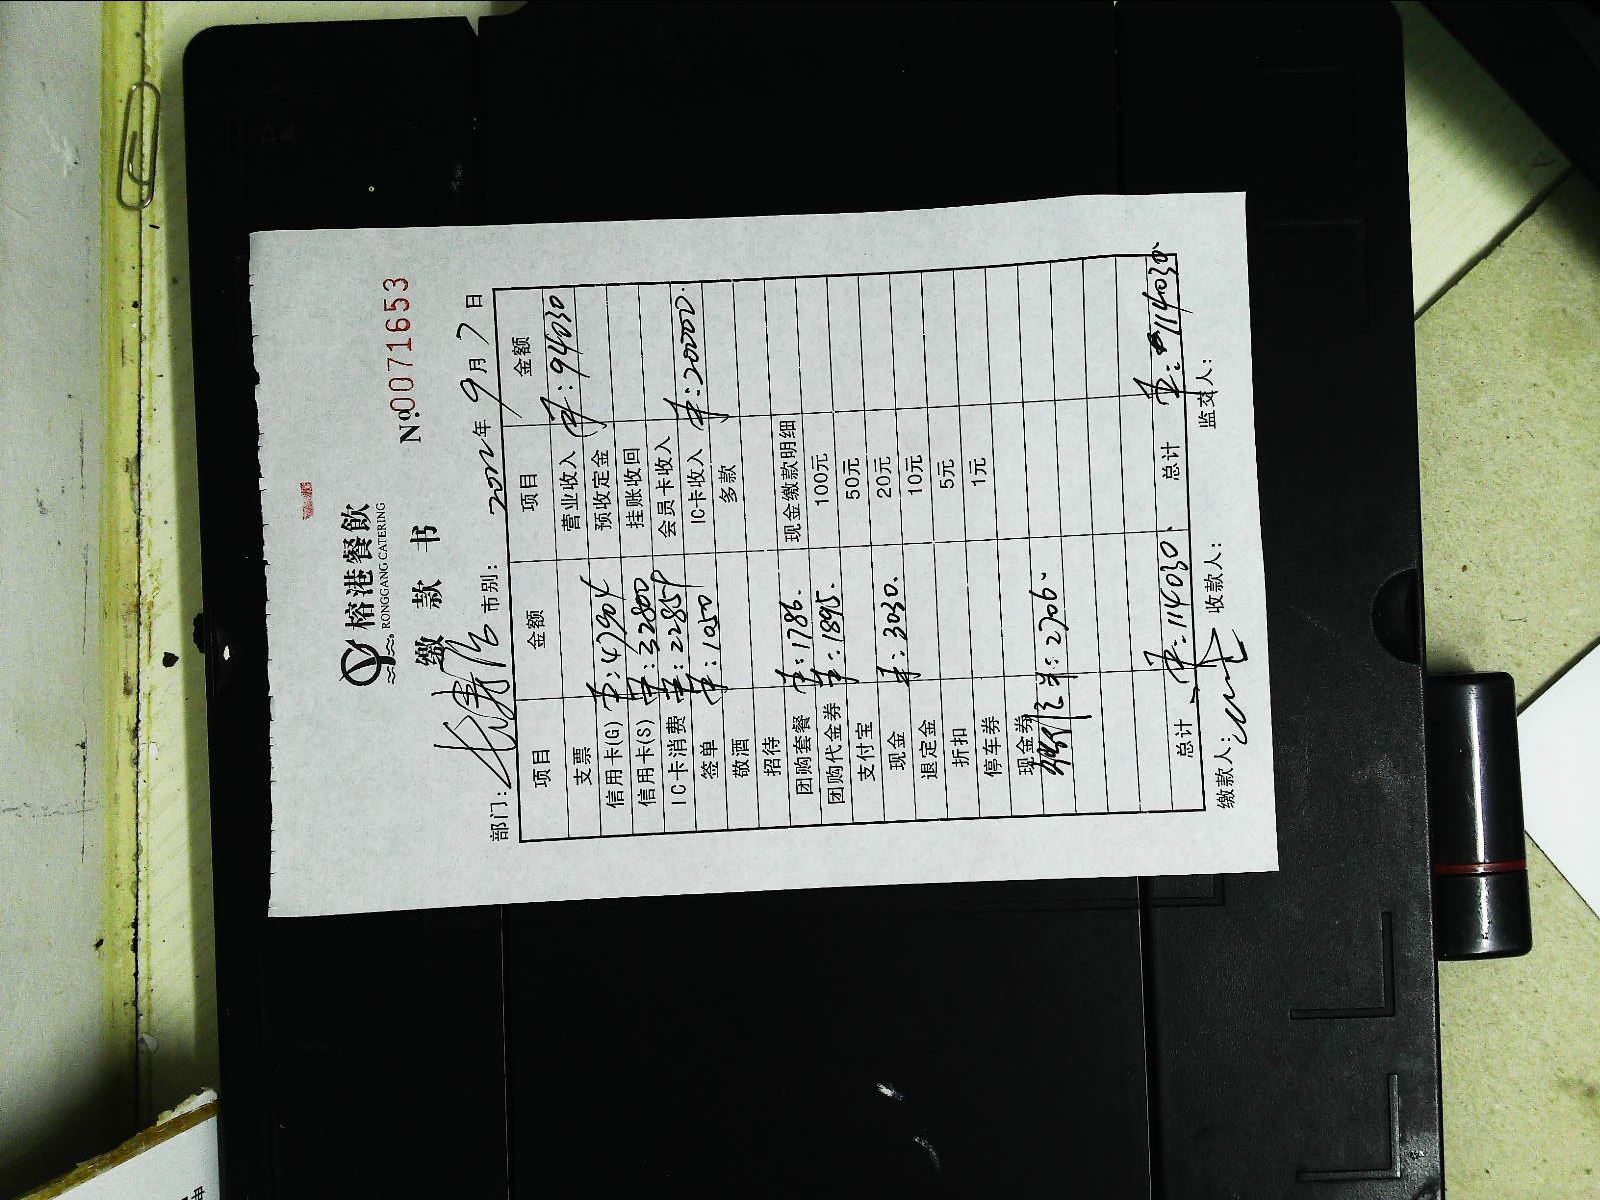 榕港餐飲
RONGGANG CATERING
缴款书
№0071653
部门: 市别: 2022年9月7日
项目 金额 项目 金额
支票 营业收入 ¥:94030
信用卡(G) ¥:47904 预收定金
信用卡(S) ¥:32800 挂账收回
IC卡消费 ¥:22859 会员卡收入
签单 ¥:1050 IC卡收入 ¥:20000.
敬酒 多款
招待
团购套餐 ¥:1786. 现金缴款明细
团购代金券 ¥:1895. 100元
支付宝 50元
现金 ¥:3030. 20元
退定金 10元
折扣 5元
停车券 1元
现金券
¥:2706.
总计 ¥:114030. 总计 ¥:114030
缴款人: 收款人: 监交人: